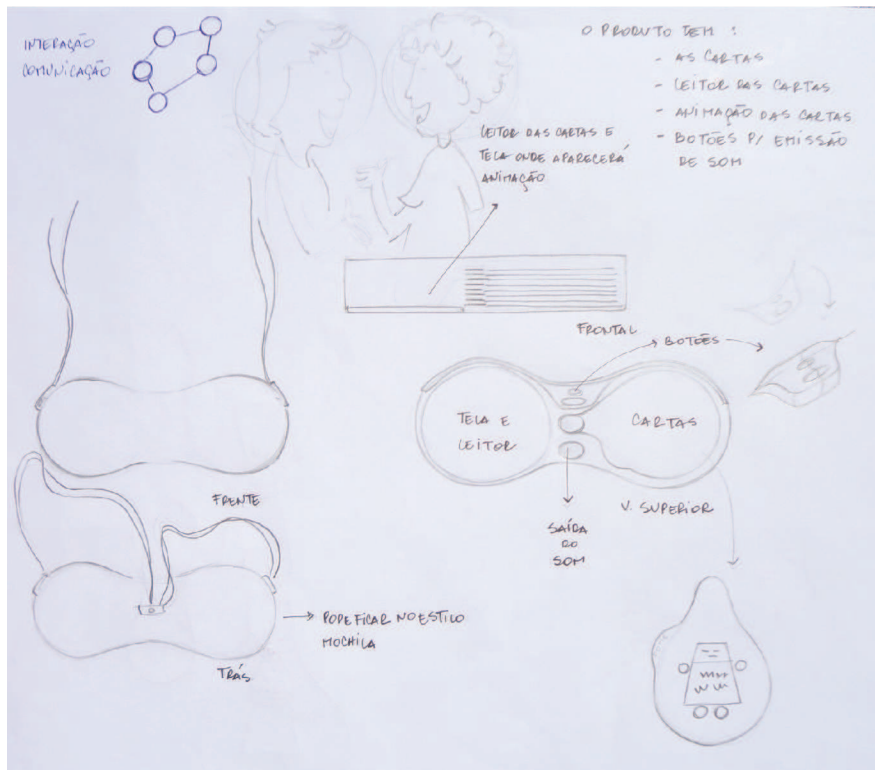 INTERAÇÃO
COMUNICAÇÃO
O PRODUTO TEM :
- AS CARTAS
- LEITOR DAS CARTAS
- ANIMAÇÃO DAS CARTAS
- BOTÕES P/ EMISSÃO
DE SOM
LEITOR DAS CARTAS E
TELA ONDE APARECERÁ
ANIMAÇÃO
FRONTAL
BOTÕES
TELA E
LEITOR
CARTAS
V. SUPERIOR
SAÍDA
DO
SOM
FRENTE
PODE FICAR NO ESTILO
MOCHILA
TRÁS